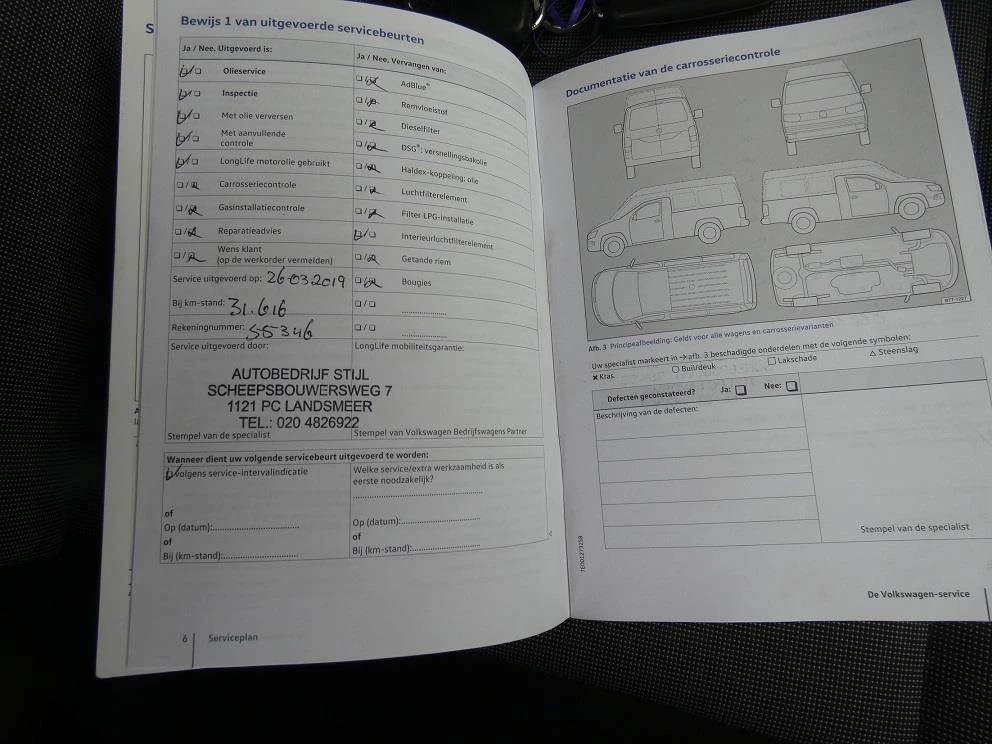 Bewijs 1 van uitgevoerde servicebeurten
Ja / Nee. Uitgevoerd is:
Olieservice
Inspectie
Met olie verversen
Met aanvullende
controle
LongLife motorolie gebruikt
Carrosseriecontrole
Gasinstallatiecontrole
Reparatieadvies
Wens klant
(op de werkorder vermelden)
Service uitgevoerd op: 26-03-2019
Bij km-stand: 31.616
Rekeningnummer: 55346
Service uitgevoerd door:
AUTOBEDRIJF STIJL
SCHEEPSBOUWERSWEG 7
1121 PC LANDSMEER
TEL.: 020 4826922
Stempel van de specialist
Ja / Nee. Vervangen van:
AdBlue®
Remvloeistof
Dieselfilter
DSG®: versnellingsbakolie
Haldex-koppeling: olie
Luchtfilterelement
Filter LPG-installatie
Interieurluchtfilterelement
Getande riem
Bougies
LongLife mobiliteitsgarantie:
Stempel van Volkswagen Bedrijfswagens Partner
Wanneer dient uw volgende servicebeurt uitgevoerd te worden:
Volgens service-intervalindicatie
of
Op (datum):
of
Bij (km-stand):
Welke service/extra werkzaamheid is als
eerste noodzakelijk?
Op (datum):
of
Bij (km-stand):
6 Serviceplan
Documentatie van de carrosseriecontrole
B7T-1227
Afb. 3 Principeafbeelding: Geldt voor alle wagens en carrosserievarianten
Uw specialist markeert in → afb. 3 beschadigde onderdelen met de volgende symbolen:
✖ Kras ○ Buil/deuk □ Lakschade △ Steenslag
Defecten geconstateerd? Ja: Nee:
Beschrijving van de defecten:
Stempel van de specialist
De Volkswagen-service